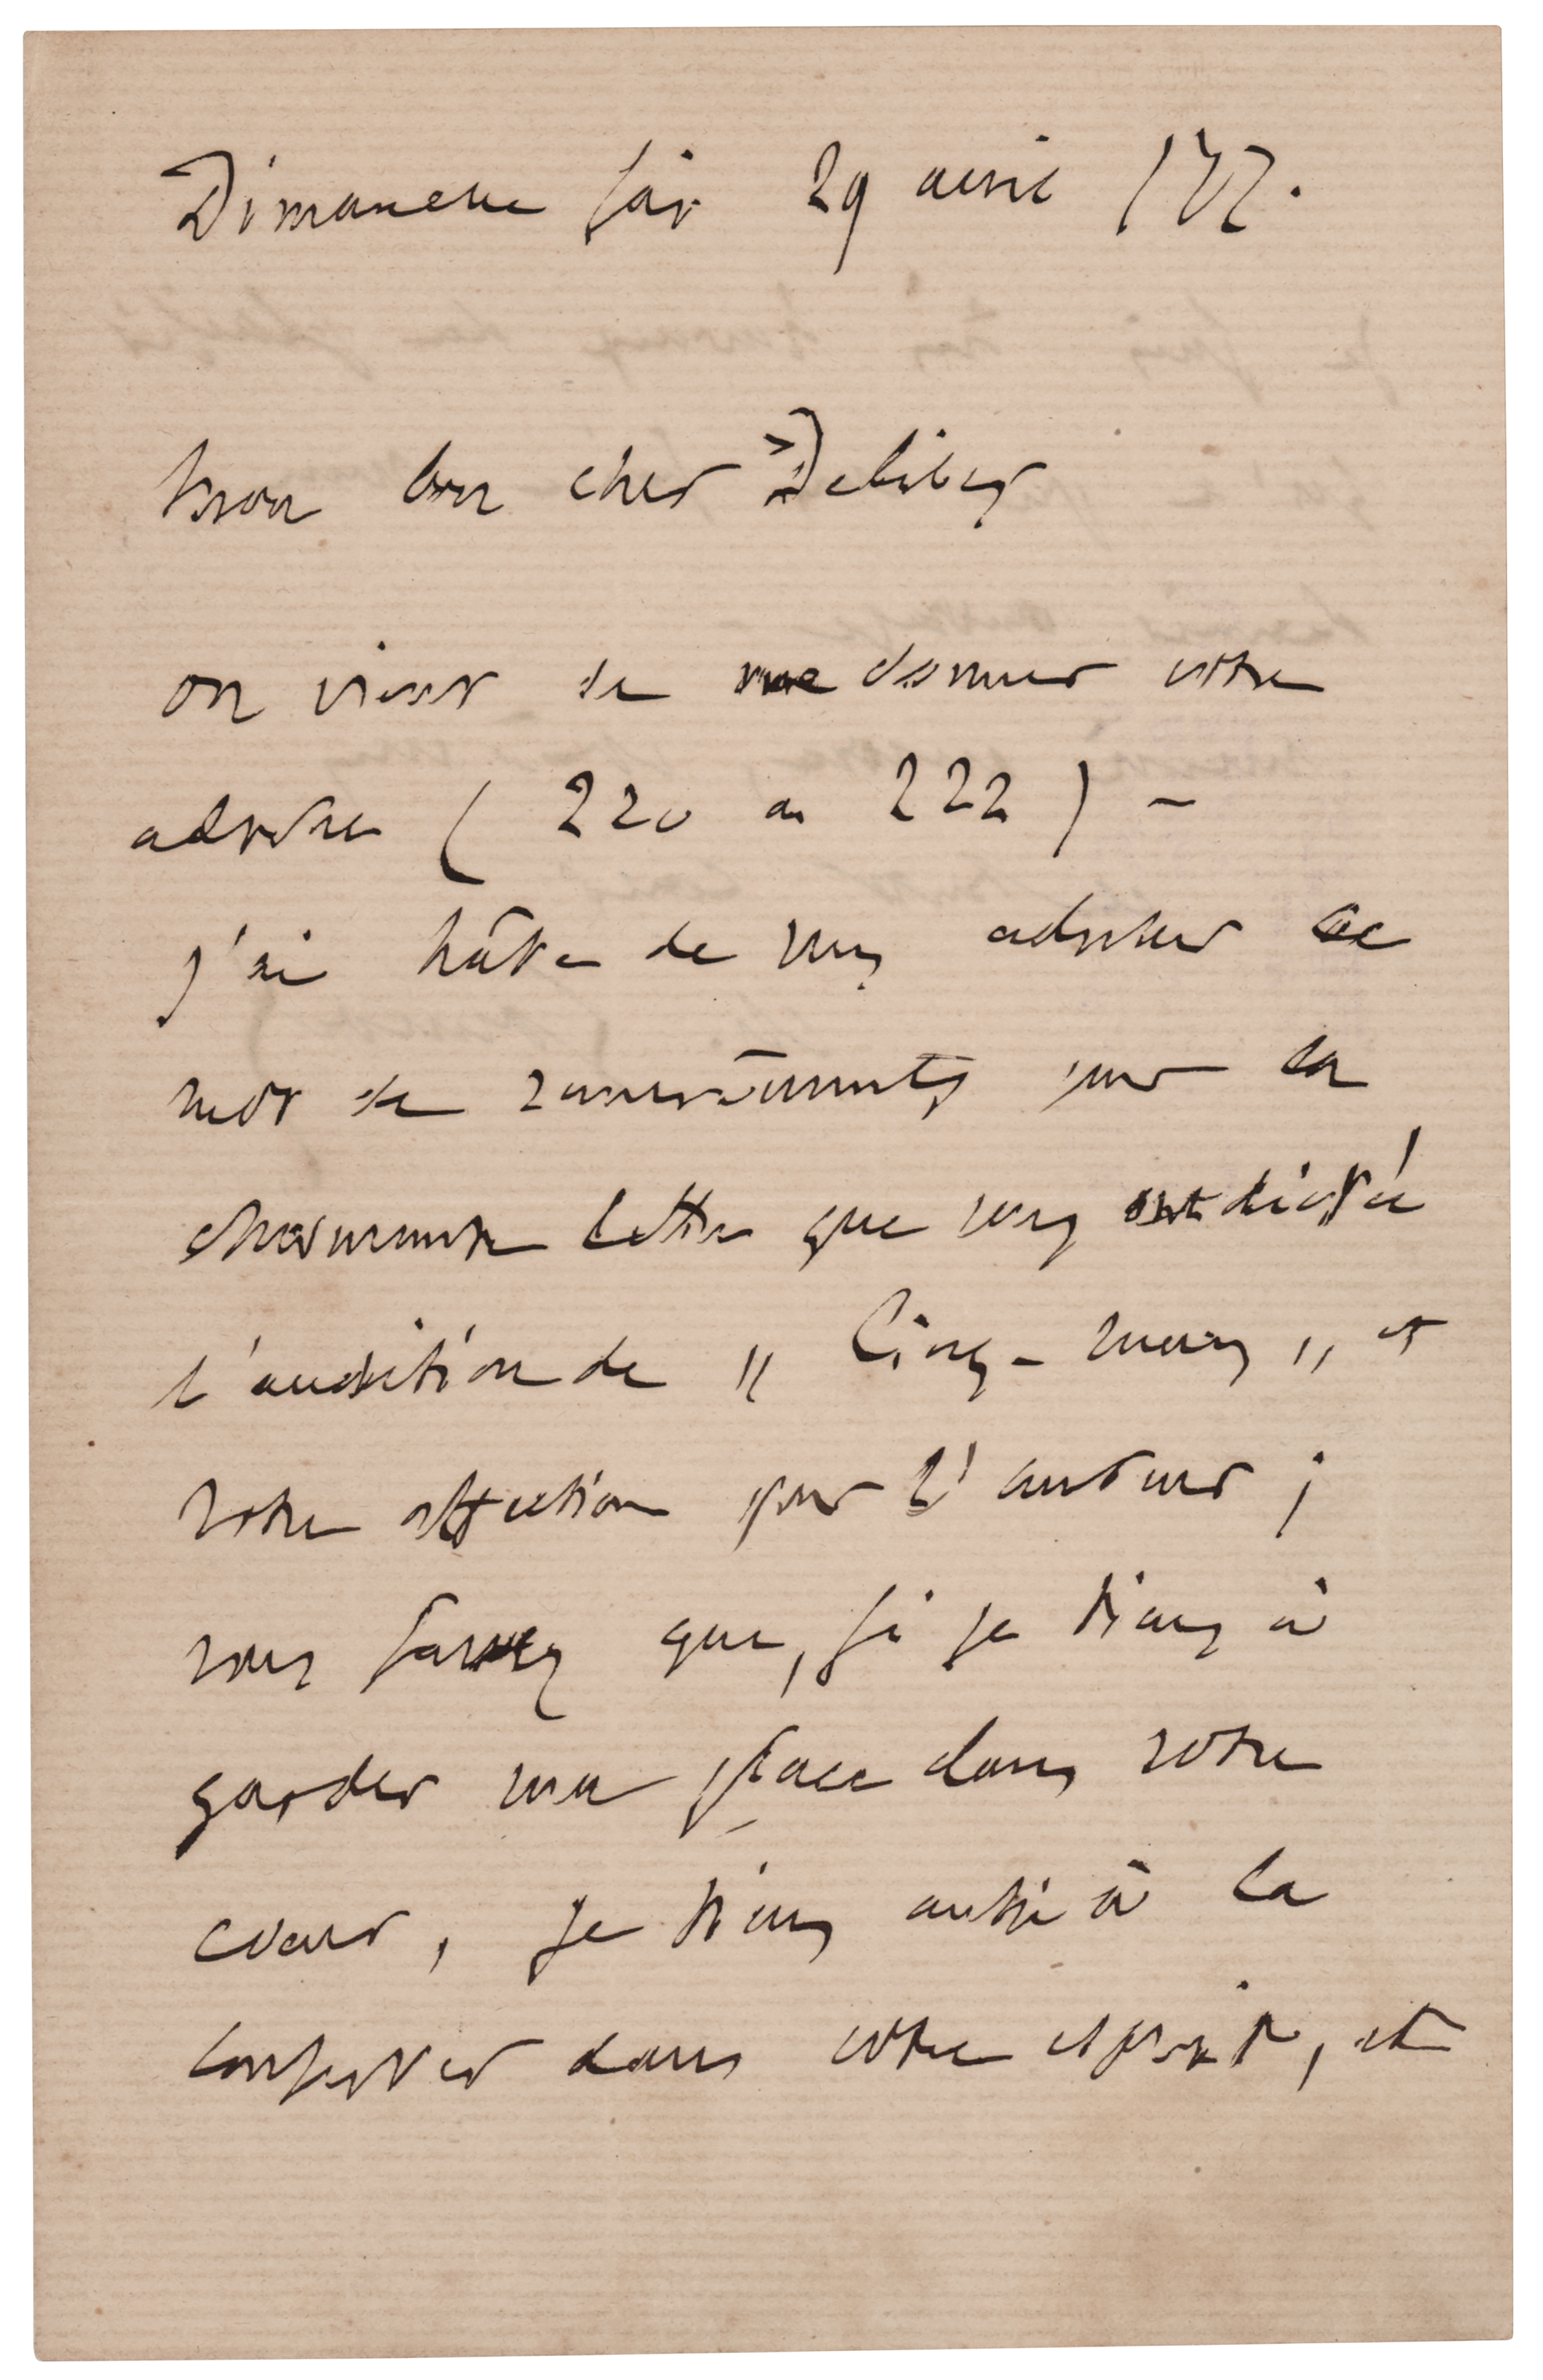 Dimanche soir 29 avril /77.
Mon bon cher Delibes
on vient de me donner votre
adresse ( 220 ou 222 ) –
j'ai hâte de vous adresser ce
mot de remerciements pour la
charmante lettre que vous ont dictée
l'audition de " Cinq-Mars " et
votre affection pour l'auteur ;
vous savez que, si je tiens à
garder ma place dans votre
cœur, je tiens aussi à la
conserver dans votre esprit, et